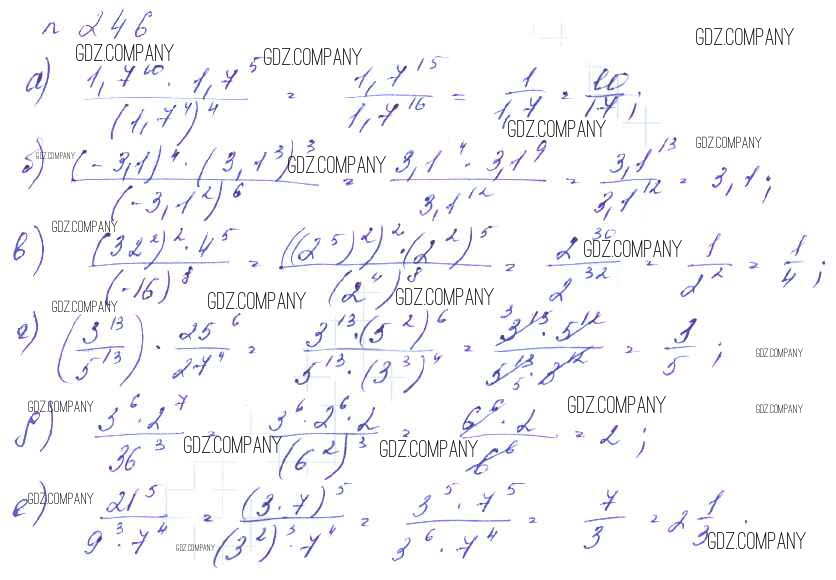 n 246
GDZ.COMPANY GDZ.COMPANY GDZ.COMPANY
а) (1,7^10 · 1,7^5)/(1,7^4)^4 = 1,7^15/1,7^16 = 1/1,7 = 10/17;
GDZ.COMPANY
GDZ.COMPANY GDZ.COMPANY GDZ.COMPANY
б) ((-3,1)^4 · (3,1^3)^3)/(-3,1^2)^6 = (3,1^4 · 3,1^9)/3,1^12 = 3,1^13/3,1^12 = 3,1;
GDZ.COMPANY GDZ.COMPANY
в) ((32^2)^2 · 4^5)/(-16)^8 = (((2^5)^2)^2 · (2^2)^5)/(2^4)^8 = 2^30/2^32 = 1/2^2 = 1/4;
GDZ.COMPANY GDZ.COMPANY GDZ.COMPANY
г) (3^13/5^13) · 25^6/27^4 = (3^13 · (5^2)^6)/(5^13 · (3^3)^4) = (3^13 · 5^12)/(5^13 · 3^12) = 3/5;
GDZ.COMPANY
GDZ.COMPANY GDZ.COMPANY GDZ.COMPANY
д) (3^6 · 2^7)/36^3 = (3^6 · 2^6 · 2)/(6^2)^3 = (6^6 · 2)/6^6 = 2;
GDZ.COMPANY GDZ.COMPANY
GDZ.COMPANY
е) 21^5/(9^3 · 7^4) = (3 · 7)^5/((3^2)^3 · 7^4) = (3^5 · 7^5)/(3^6 · 7^4) = 7/3 = 2 1/3.
GDZ.COMPANY GDZ.COMPANY